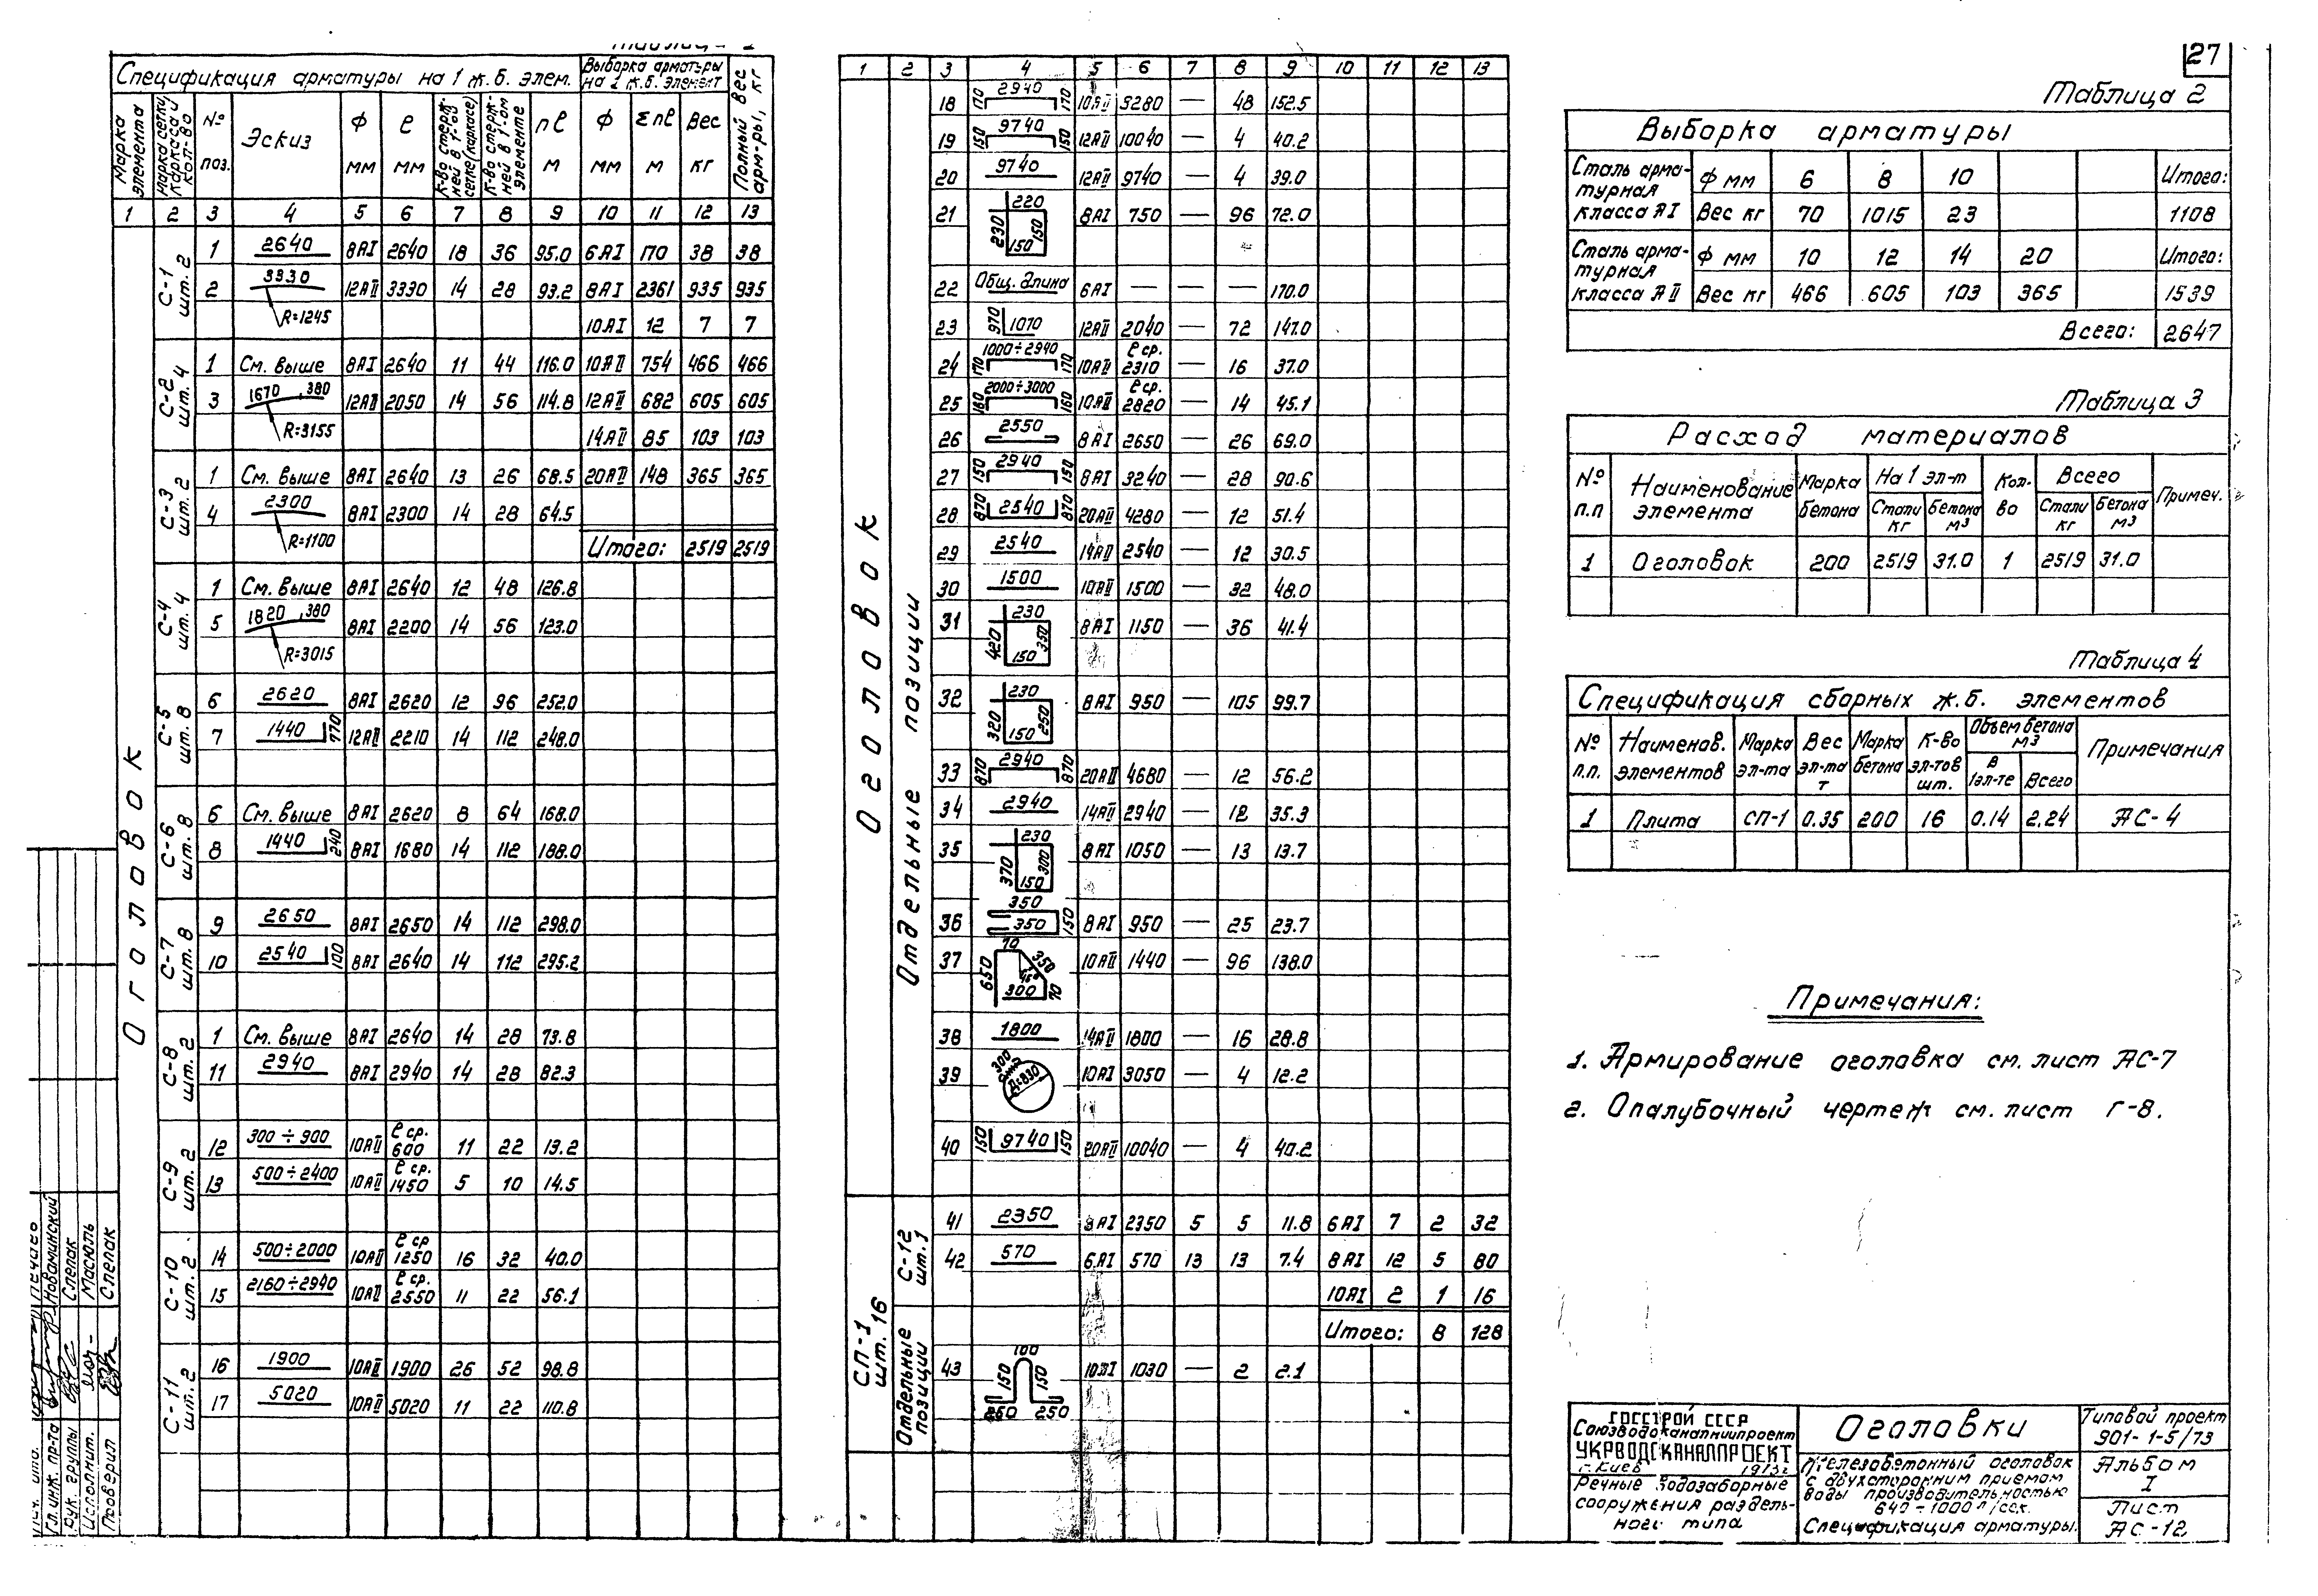 27
Спецификация арматуры на 1 ж.б. элем. Выборка арматуры на 1 ж.б. элемент Полный вес арм-ры, кг
Марка элемента Марка сетки, каркаса и кол-во № поз. Эскиз Ф мм ℓ мм К-во стержней в 1-ой сетке (каркасе) К-во стержней в 1-ом элементе nℓ м Ф мм Σnℓ м Вес кг
1 2 3 4 5 6 7 8 9 10 11 12 13
Оголовок
С-1 шт. 2
1 2640 8АI 2640 18 36 95.0 6АI 170 38 38
2 3330 R=1245 12АII 3330 14 28 93.2 8АI 2361 935 935
10АI 12 7 7
С-2 шт. 4
1 См. выше 8АI 2640 11 44 116.0 10АII 754 466 466
3 1670 380 R=3155 12АII 2050 14 56 114.8 12АII 682 605 605
14АII 85 103 103
С-3 шт. 2
1 См. выше 8АI 2640 13 26 68.5 20АII 148 365 365
4 2300 R=1100 8АI 2300 14 28 64.5
Итого: 2519 2519
С-4 шт. 4
1 См. выше 8АI 2640 12 48 126.8
5 1820 380 R=3015 8АI 2200 14 56 123.0
С-5 шт. 8
6 2620 8АI 2620 12 96 252.0
7 1440 770 12АII 2210 14 112 248.0
С-6 шт. 8
6 См. выше 8АI 2620 8 64 168.0
8 1440 240 8АI 1680 14 112 188.0
С-7 шт. 8
9 2650 8АI 2650 14 112 298.0
10 2540 100 8АI 2640 14 112 295.2
С-8 шт. 2
1 См. выше 8АI 2640 14 28 73.8
11 2940 8АI 2940 14 28 82.3
С-9 шт. 2
12 300÷900 10АII ℓ ср. 600 11 22 13.2
13 500÷2400 10АII ℓ ср. 1450 5 10 14.5
С-10 шт. 2
14 500÷2000 10АII ℓ ср 1250 16 32 40.0
15 2160÷2940 10АII ℓ ср. 2550 11 22 56.1
С-11 шт. 2
16 1900 10АII 1900 26 52 98.8
17 5020 10АII 5020 11 22 110.8
1 2 3 4 5 6 7 8 9 10 11 12 13
Оголовок
Отдельные позиции
18 170 2940 170 10АII 3280 — 48 152.5
19 150 9740 150 12АII 10040 — 4 40.2
20 9740 12АII 9740 — 4 39.0
21 220 230 150 150 8АI 750 — 96 72.0
22 Общ. длина 6АI — — — 170.0
23 970 1070 12АII 2040 — 72 147.0
24 170 1000÷2940 170 10АII ℓ ср. 2310 — 16 37.0
25 160 2000÷3000 160 10АII ℓ ср. 2820 — 14 45.1
26 2550 8АI 2650 — 26 69.0
27 150 2940 150 8АI 3240 — 28 90.6
28 870 2540 870 20АII 4280 — 12 51.4
29 2540 14АII 2540 — 12 30.5
30 1500 10АII 1500 — 32 48.0
31 230 420 350 150 8АI 1150 — 36 41.4
32 230 320 250 150 8АI 950 — 105 99.7
33 870 2940 870 20АII 4680 — 12 56.2
34 2940 14АII 2940 — 12 35.3
35 230 370 300 150 8АI 1050 — 13 13.7
36 350 350 150 8АI 950 — 25 23.7
37 70 650 350 45° 300 70 10АII 1440 — 96 138.0
38 1800 14АII 1800 — 16 28.8
39 300 Д=830 10АI 3050 — 4 12.2
40 150 9740 150 20АII 10040 — 4 40.2
СП-1 шт. 16
С-12 шт. 1
41 2350 8АI 2350 5 5 11.8 6АI 7 2 32
42 570 6АI 570 13 13 7.4 8АI 12 5 80
10АI 2 1 16
Итого: 8 128
Отдельные позиции
43 100 150 150 250 250 10АI 1030 — 2 2.1
Таблица 2
Выборка арматуры
Сталь арматурная класса АI Ф мм 6 8 10 Итого:
Вес кг 70 1015 23 1108
Сталь арматурная класса АII Ф мм 10 12 14 20 Итого:
Вес кг 466 605 103 365 1539
Всего: 2647
Таблица 3
Расход материалов
№ п.п Наименование элемента Марка бетона На 1 эл-т Стали кг Бетона м³ Кол-во Всего Стали кг Бетона м³ Примеч.
1 Оголовок 200 2519 31.0 1 2519 31.0
Таблица 4
Спецификация сборных ж.б. элементов
№ п.п. Наименов. элементов Марка эл-та Вес эл-та т Марка бетона К-во эл-тов шт. Объем бетона м3 В 1эл-те Всего Примечания
1 Плита СП-1 0.35 200 16 0.14 2.24 АС-4
Примечания:
1. Армирование оголовка см. лист АС-7
2. Опалубочный чертеж см. лист Г-8.
ГОССТРОЙ СССР
Союзводоканалниипроект
УКРВОДОКАНАЛПРОЕКТ
г. Киев 1973г
Речные водозаборные
сооружения раздель-
ного типа
Оголовки
Железобетонный оголовок
с двухсторонним приемом
воды производительностью
640÷1000 л/сек.
Спецификация арматуры.
Типовой проект
901-1-5/73
Альбом
I
Лист
АС-12
Гл. инж. пр-та Новаминский
Рук. группы Слепак
Исполнит. Масюль
Проверил Слепак